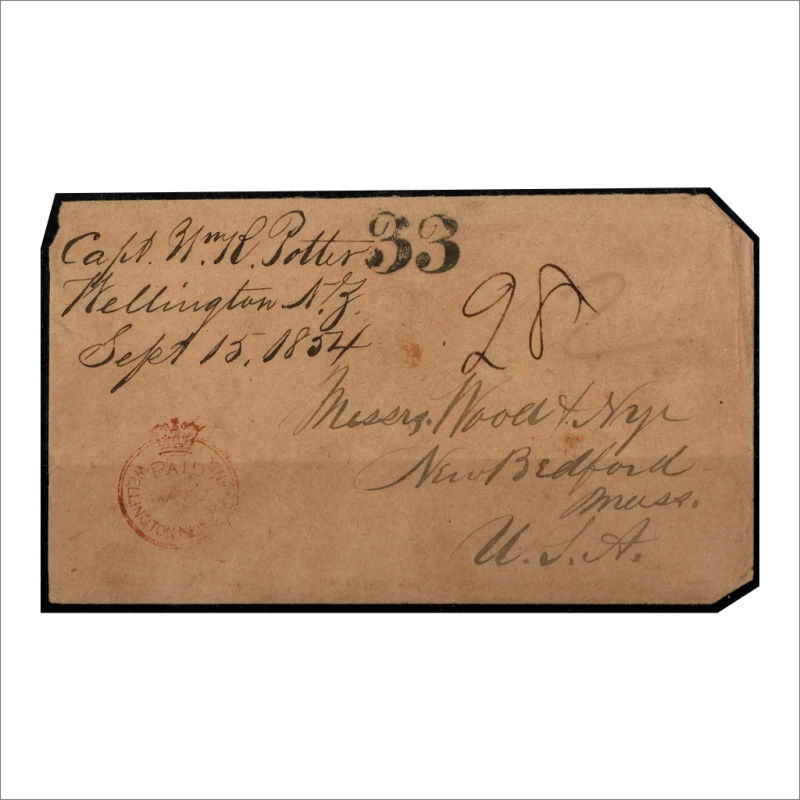 Capt. Wm. R. Potter
33
Wellington N.Z.
Sept 15, 1854
28
Messrs. Wood & Nye
New Bedford
Mass.
U.S.A.
PAID
WELLINGTON NEW